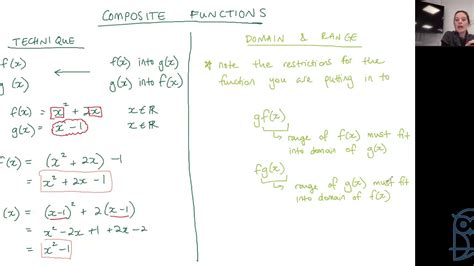 COMPOSITE FUNCTIONS
TECHNIQUE
f(x) f(x) into g(x)
(x) g(x) into f(x)
f(x) = x² + 2x x∈ℝ
g(x) = x - 1 x∈ℝ
f(x) = (x² + 2x) - 1
= x² + 2x - 1
(x) = (x-1)² + 2(x-1)
= x² - 2x + 1 + 2x - 2
= x² - 1
DOMAIN & RANGE
* note the restrictions for the
function you are putting in to
gf(x)
range of f(x) must fit
into domain of g(x)
fg(x)
range of g(x) must fit
into domain of f(x)